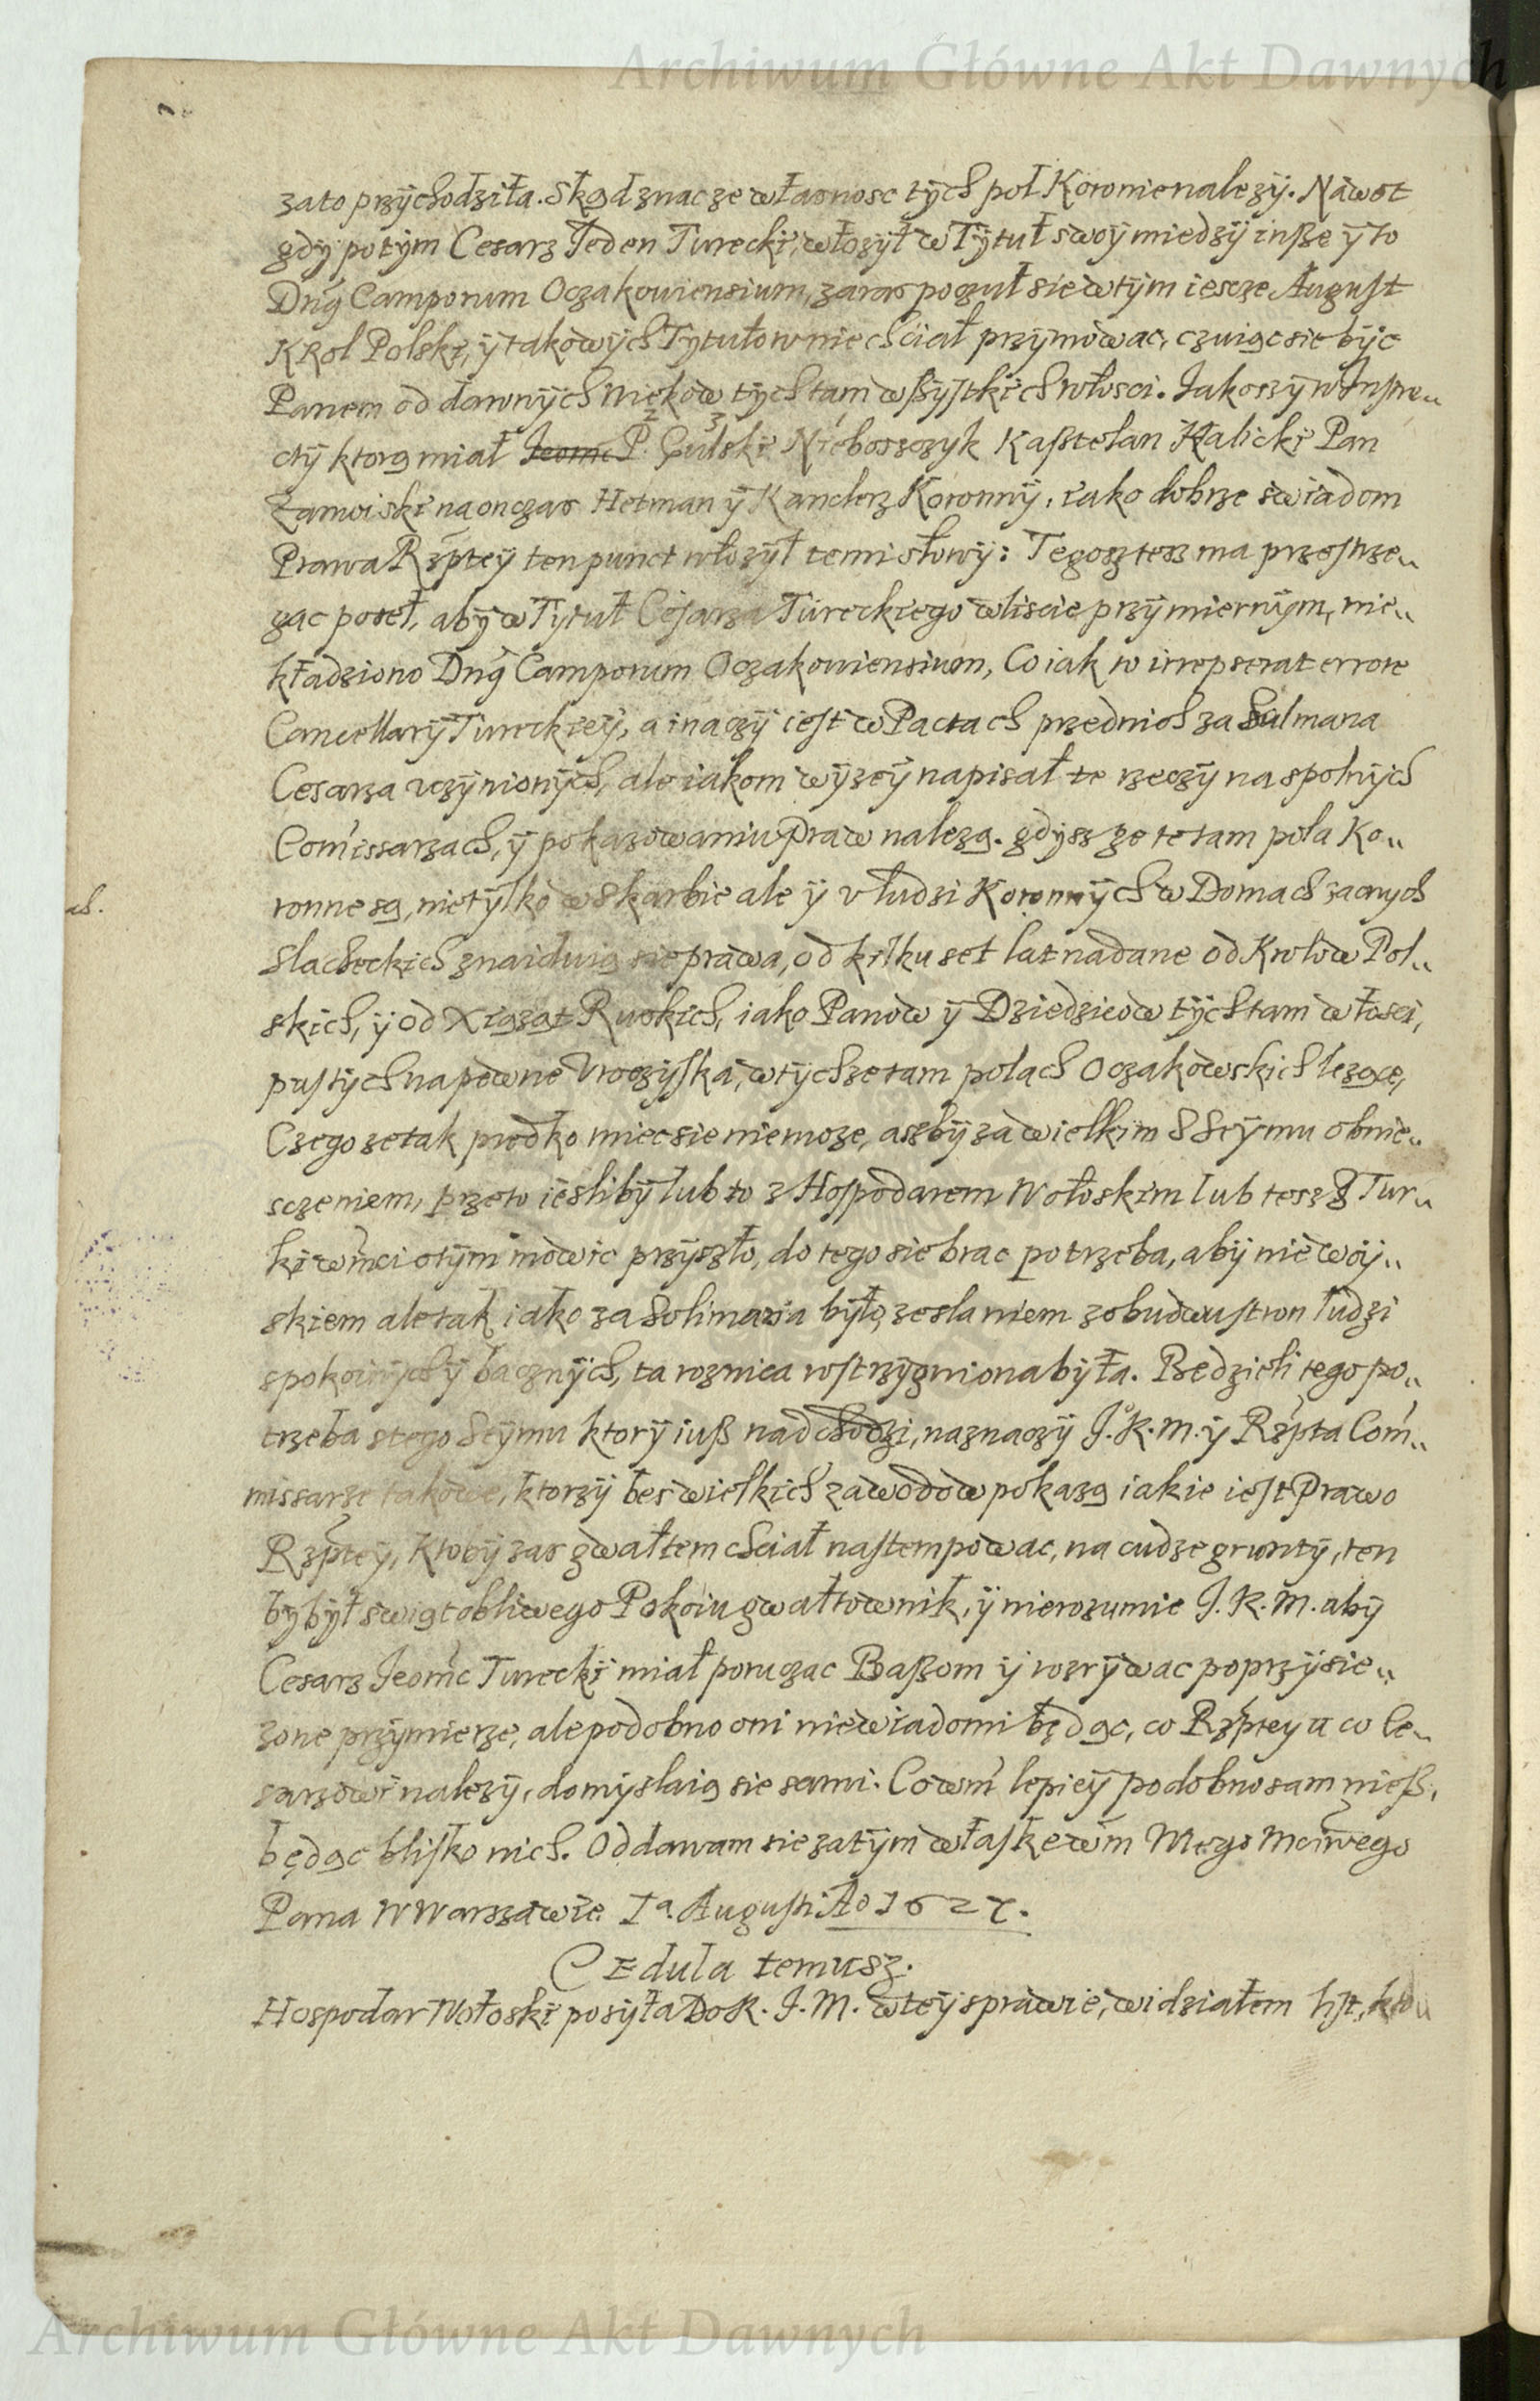 Archiwum Główne Akt Dawnych
zato przÿchodziła. Skąd znac ze własnosc tÿch pol Koronie nalezÿ. Nawet
gdÿ potÿm Cesarz Jeden Turecki, włozÿł w Tÿtuł swoÿ miedzÿ insze ÿ to
Dng Camporum Oczakouiensium, zaras poczuł sie w tÿm iescze August
KRol Polski, ÿ takowÿch Tytułow nie chciał przÿmowac, czuiąc sie bÿc
Panem od dawnÿch wiekow tÿch tam wszÿstkich włosci. Jakosz ÿ w Instru„
2 3
ctÿ ktorą miał Jeomc P. Gulski Nieboszczyk Kasztelan Halicki Pan
Zamoiski na on czas Hetman ÿ Kanclerz Koronnÿ, iako dobrze swiadom
Prawa Rzptey ten punct włozÿł temi słowÿ: Tegosz tesz ma przestrze„
gac poseł, abÿ w Tytuł Cesarza Tureckiego w liscie przÿmiernÿm, nie„
kładziono Dng Camporum Oczakouiensium, Co iak to irrepserat errore
Cancellarÿ Tureckieÿ, a inaczÿ iest w Pactach przednich za Sulmana
Cesarza vczÿnionÿch, ale iakom wÿzeÿ napisał te rzeczÿ na spolnÿch
Comissarzach, ÿ pokazowaniu Praw nalezą. gdÿsz ze te tam pola Ko„
ronne są, nie tÿlko w Skarbie ale ÿ v ludzi Koronnÿch w Domach zacnych
ch.
Slacheckich znaiduią sie prawa, od kilku set lat nadane od Krolow Pol„
skich, ÿ od Xiąząt Ruskich, iako Panow ÿ Dziedzicow tÿch tam włosci,
pustÿch na pewne Vroczÿska, w tÿchze tam polach Oczakowskich lezące,
Czego ze tak prędko miec sie niemoze, aszbÿ za wielkim S Seÿmu obwie„
sczeniem, przeto iesliby lub to z Hospodarem Wołoskim lub tesz z Tur„
ki wmci o tÿm mowic przÿszło, do tego sie brac potrzeba, abÿ nie woÿ„
skiem ale tak iako za Solimana bÿło, zeslaniem z obudwu stron ludzi
spokoinÿch ÿ bacznÿch, ta roznica rostrzÿgniona była. Bedzieli tego po„
trzeba s tego Seÿmu ktorÿ iusz nadchodzi, naznaczÿ J. K. M. ÿ Rzpta Com„
missarze takowe, ktorzÿ bes wielkich zawodow pokazą iakie iest Prawo
Rzptey, Ktobÿ zas gwałtem chciał nastempowac, na cudze gruntÿ, ten
bÿ bÿł swiątobliwego Pokoiu gwałtownik, ÿ nierozumie J. K. M. abÿ
Cesarz Jeomc Turecki miał poruczac Baszom ÿ rozrÿwac poprzÿsie„
zone przÿmierze, ale podobno oni niewiadomi będąc, co Rzptey a co Ce„
sarzowi nalezÿ, domÿslaią sie sami. Co wm lepieÿ podobno sam niesz,
będąc blisko nich. Oddawam sie zatÿm w łaskę wm Mego Mciwego
Pana W Warszawie. 1a. Augusti Ao 1627.
CEdula temusz.
Hospodar Wołoski posÿła Do K. J. M. w teÿ sprawie, widziałem list,
Archiwum Główne Akt Dawnych